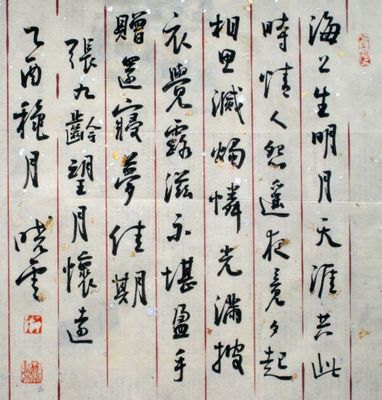 海上生明月天涯共此
時情人怨遙夜竟夕起
相思滅燭憐光滿披
衣覺露滋不堪盈手
贈還寢夢佳期
張九齡望月懷遠
乙酉穐月 晓雲